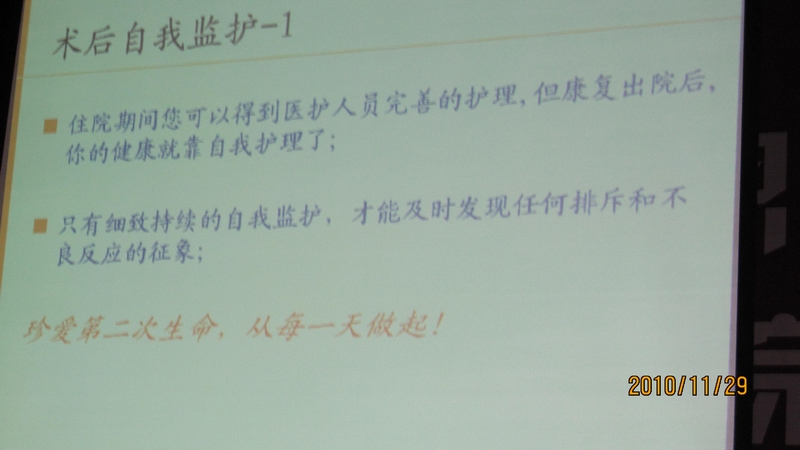 术后自我监护-1
■ 住院期间您可以得到医护人员完善的护理,但康复出院后,
你的健康就靠自我护理了;
■ 只有细致持续的自我监护，才能及时发现任何排斥和不
良反应的征象;
珍爱第二次生命，从每一天做起!
2010/11/29